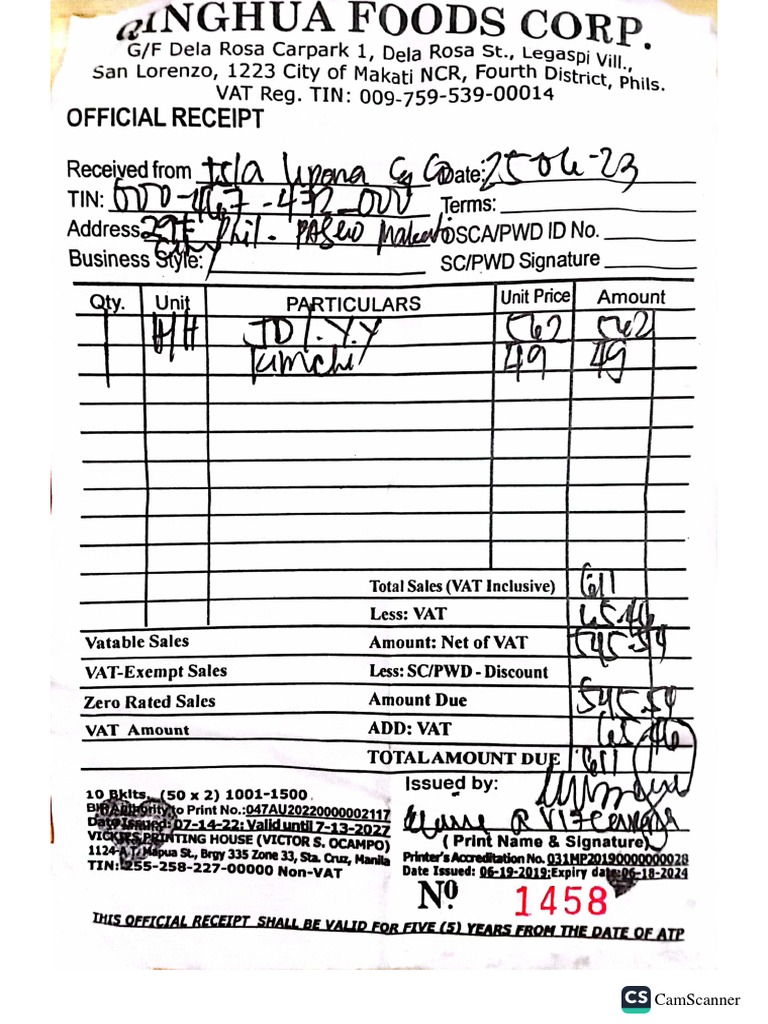 QINGHUA FOODS CORP.
G/F Dela Rosa Carpark 1, Dela Rosa St., Legaspi Vill.,
San Lorenzo, 1223 City of Makati NCR, Fourth District, Phils.
VAT Reg. TIN: 009-759-539-00014
OFFICIAL RECEIPT
Received from Isla Lipana & Co Date: 25 06-23
TIN: 000-467-472-000 Terms:
Address 29F Phil. Paseo Makati OSCA/PWD ID No.
Business Style: SC/PWD Signature
Qty. Unit PARTICULARS Unit Price Amount
1 562 562
1 Kimchi 49 49
Total Sales (VAT Inclusive) 611
Less: VAT 65.46
Vatable Sales Amount: Net of VAT 545.54
VAT-Exempt Sales Less: SC/PWD - Discount
Zero Rated Sales Amount Due 545.54
VAT Amount ADD: VAT 65.46
TOTAL AMOUNT DUE 611
Issued by:
10 Bklts. (50 x 2) 1001-1500
BIR Authority to Print No.: 047AU20220000002117
Date Issued: 07-14-22; Valid until 7-13-2027
VICKIES PRINTING HOUSE (VICTOR S. OCAMPO)
1124-A T. Mapua St., Brgy 335 Zone 33, Sta. Cruz, Manila
TIN: 255-258-227-00000 Non-VAT
( Print Name & Signature)
Printer's Accreditation No. 031MP20190000000028
Date Issued: 06-19-2019; Expiry date: 06-18-2024
Nº 1458
THIS OFFICIAL RECEIPT SHALL BE VALID FOR FIVE (5) YEARS FROM THE DATE OF ATP
CS CamScanner